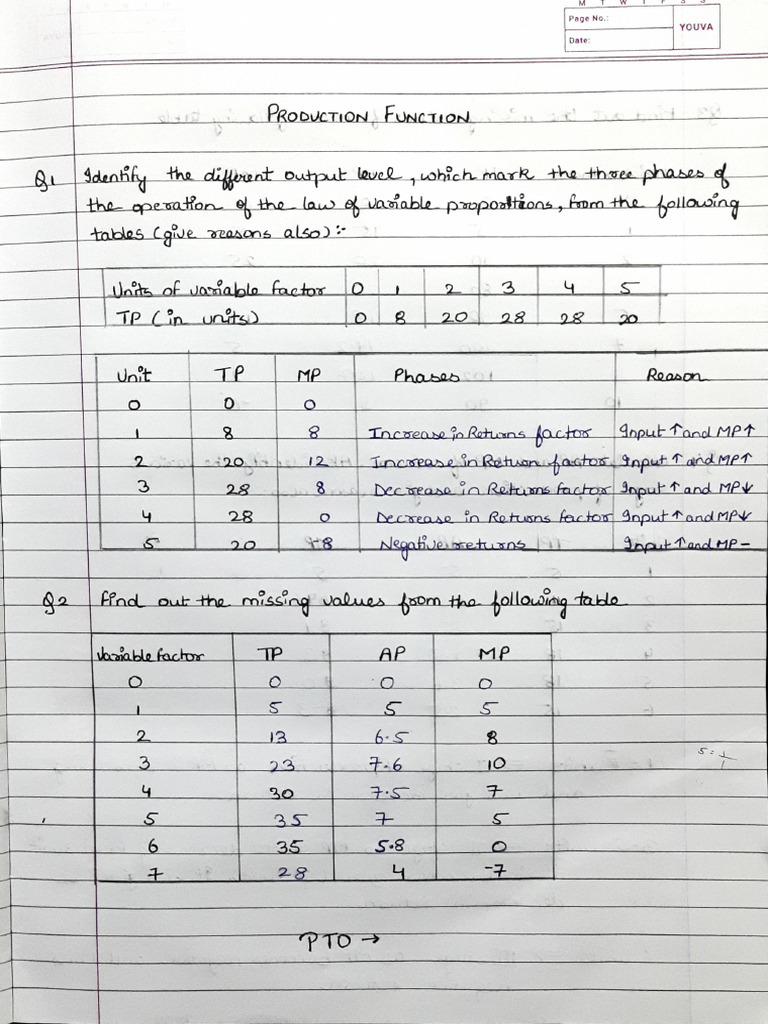 M T W T F S S
Page No.:
YOUVA
Date:
PRODUCTION FUNCTION
Q1 Identify the different output level, which mark the three phases of
the operation of the law of variable proportions, from the following
tables (give reasons also):-
Units of variable factor 0 1 2 3 4 5
TP (in units) 0 8 20 28 28 20
Unit TP MP Phases Reason
0 0 0
1 8 8 Increase in Returns factor Input ↑ and MP↑
2 20 12 Increase in Return factor Input ↑ and MP↑
3 28 8 Decrease in Returns factor Input ↑ and MP↓
4 28 0 Decrease in Returns factor Input ↑ and MP↓
5 20 -8 Negative returns Input ↑ and MP-
Q2 Find out the missing values from the following table
Variable factor TP AP MP
0 0 0 0
1 5 5 5
2 13 6.5 8
3 23 7.6 10
4 30 7.5 7
5 35 7 5
6 35 5.8 0
7 28 4 -7
PTO →